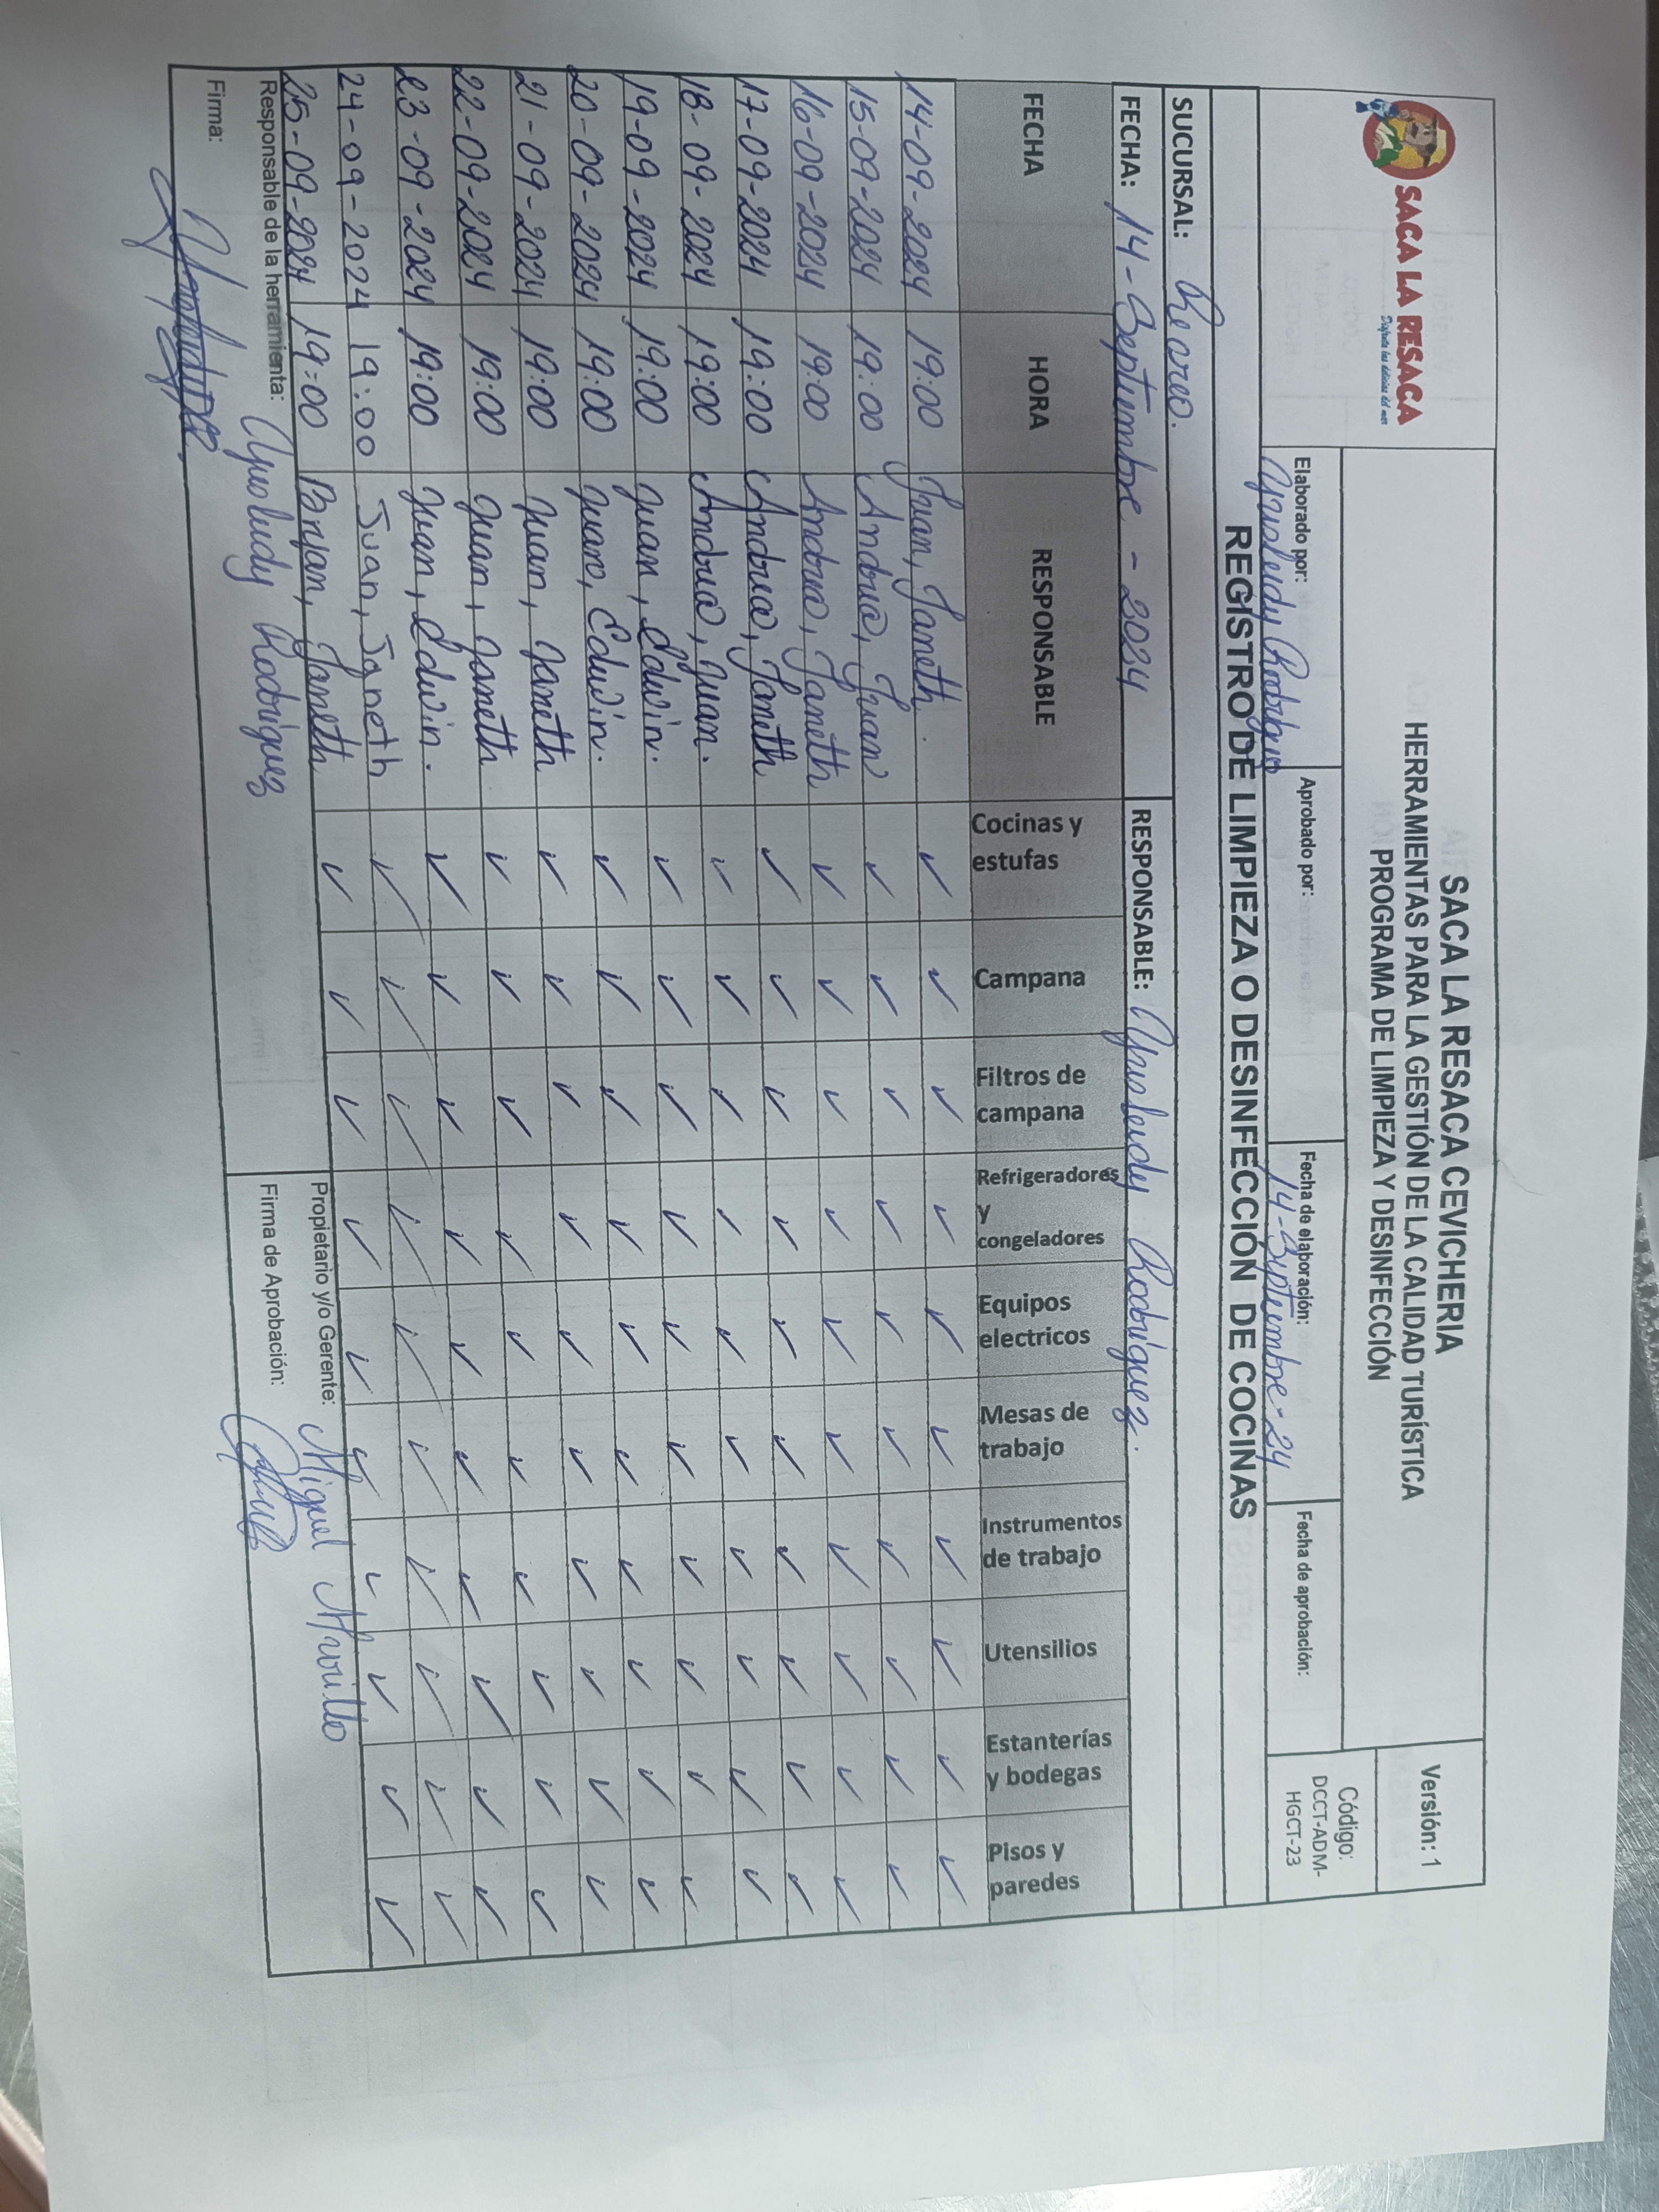 SACA LA RESACA
Disfruta las delicias del mar
SACA LA RESACA CEVICHERIA
HERRAMIENTAS PARA LA GESTIÓN DE LA CALIDAD TURÍSTICA
PROGRAMA DE LIMPIEZA Y DESINFECCIÓN
Versión: 1
Código:
DCCT-ADM-
HGCT-23
Elaborado por: Rodríguez
Aprobado por:
Fecha de elaboración: 14-Septiembre-24
Fecha de aprobación:
REGISTRO DE LIMPIEZA O DESINFECCIÓN DE COCINAS
SUCURSAL: Recreo.
FECHA: 14-Septiembre-2024 RESPONSABLE: Rodríguez.
FECHA HORA RESPONSABLE Cocinas y estufas Campana Filtros de campana Refrigeradores y congeladores Equipos electricos Mesas de trabajo Instrumentos de trabajo Utensilios Estanterías y bodegas Pisos y paredes
14-09-2024 19:00 Juan, Janeth. ✓ ✓ ✓ ✓ ✓ ✓ ✓ ✓ ✓ ✓
15-09-2024 19:00 Andrea, Juan ✓ ✓ ✓ ✓ ✓ ✓ ✓ ✓ ✓ ✓
16-09-2024 19:00 Andrea, Janeth ✓ ✓ ✓ ✓ ✓ ✓ ✓ ✓ ✓ ✓
17-09-2024 19:00 Andrea, Janeth ✓ ✓ ✓ ✓ ✓ ✓ ✓ ✓ ✓ ✓
18-09-2024 19:00 Andrea, Juan. ✓ ✓ ✓ ✓ ✓ ✓ ✓ ✓ ✓ ✓
19-09-2024 19:00 Juan, Edwin. ✓ ✓ ✓ ✓ ✓ ✓ ✓ ✓ ✓ ✓
20-09-2024 19:00 Juan, Edwin. ✓ ✓ ✓ ✓ ✓ ✓ ✓ ✓ ✓ ✓
21-09-2024 19:00 Juan, Janeth ✓ ✓ ✓ ✓ ✓ ✓ ✓ ✓ ✓ ✓
22-09-2024 19:00 Juan, Janeth ✓ ✓ ✓ ✓ ✓ ✓ ✓ ✓ ✓ ✓
23-09-2024 19:00 Juan, Edwin. ✓ ✓ ✓ ✓ ✓ ✓ ✓ ✓ ✓ ✓
24-09-2024 19:00 Juan, Janeth ✓ ✓ ✓ ✓ ✓ ✓ ✓ ✓ ✓ ✓
25-09-2024 19:00 Bryan, Janeth ✓ ✓ ✓ ✓ ✓ ✓ ✓ ✓ ✓ ✓
Responsable de la herramienta: Rodríguez
Propietario y/o Gerente: Miguel Murillo
Firma:
Firma de Aprobación: